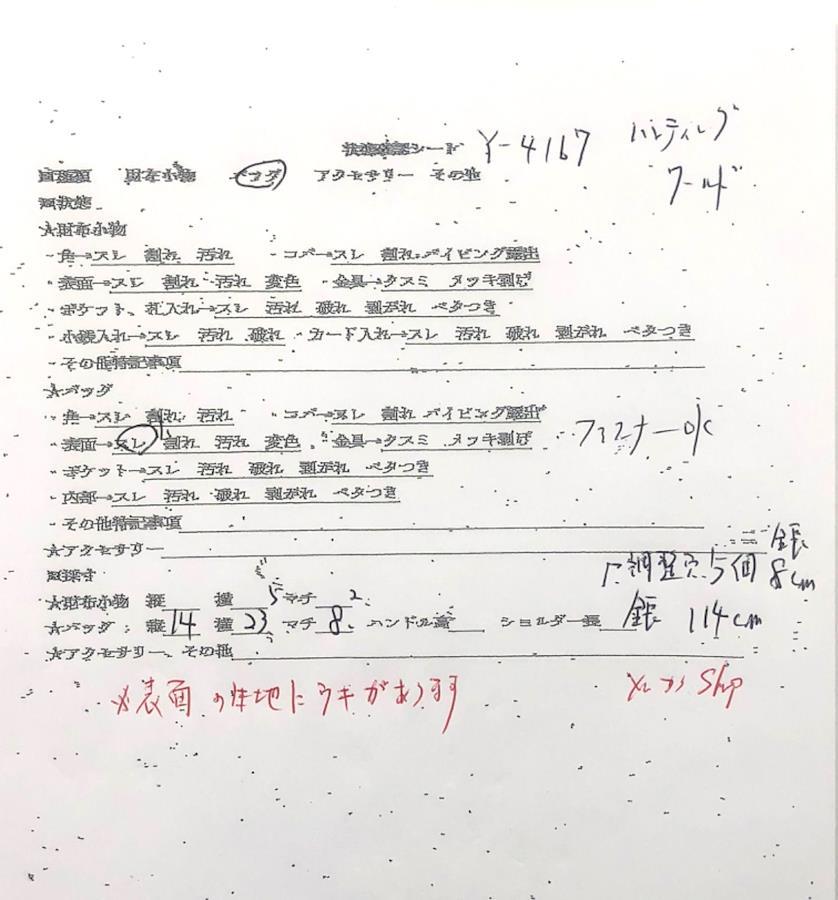 状態確認シート Y-4167 ハンティング
ワールド
財布小物 バッグ アクセサリー その他
状態
★財布小物
・角→スレ 割れ 汚れ ・コバ→スレ 割れ パイピング露出
・表面→スレ 割れ 汚れ 変色 ・金具→クスミ メッキ剥げ
・ポケット、札入れ→スレ 汚れ 破れ 剥がれ ベタつき
・小銭入れ→スレ 汚れ 破れ ・カード入れ→スレ 汚れ 破れ 剥がれ ベタつき
・その他特記事項
★バッグ
・角→スレ 割れ 汚れ ・コバ→スレ 割れ パイピング露出
・表面→スレ 割れ 汚れ 変色 ・金具→クスミ メッキ剥げ ファスナーOK
・ポケット→スレ 汚れ 破れ 剥がれ ベタつき
・内部→スレ 汚れ 破れ 剥がれ ベタつき
・その他特記事項
★アクセサリー
採寸 調整穴 5個 8cm
★財布小物 縦 横 5 マチ 2
★バッグ 縦 14 横 23 マチ 8 ハンドル高 ショルダー長 全長 114cm
★アクセサリー、その他
※表面の生地にウキがあります